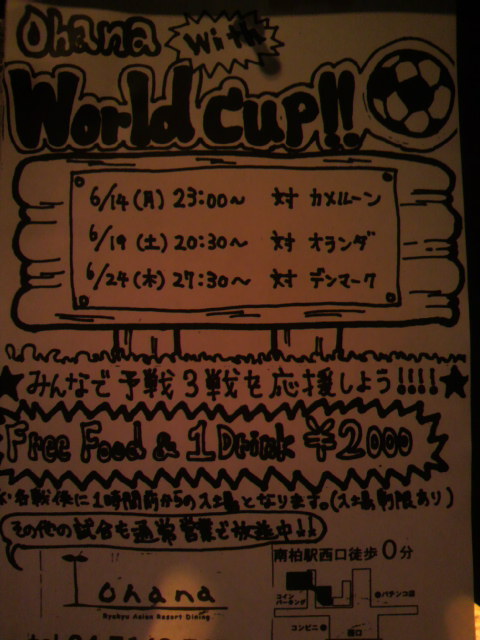 Ohana with
World Cup!!
6/14(月) 23:00〜 対 カメルーン
6/19(土) 20:30〜 対 オランダ
6/24(木) 27:30〜 対 デンマーク
★みんなで予戦3戦を応援しよう!!!!★
Free Food & 1 Drink ¥2000
各戦供に1時間前からの入場となります。(入場制限あり)
その他の試合も通常営業で放送中!!
南柏駅西口徒歩0分
ohana
Ryukyu Asian Resort Dining
コイン
パーキング
パチンコ店
コンビニ
西口